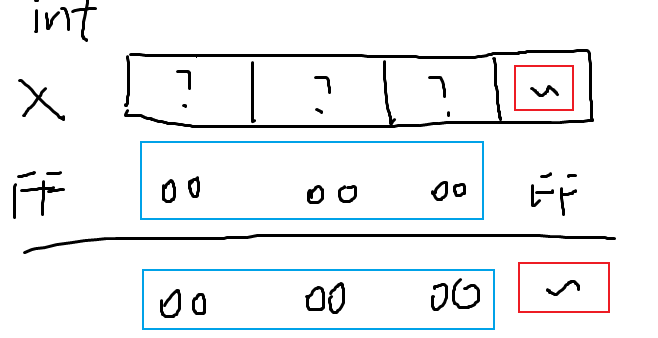 int
X ? ? ? ~
FF 00 00 00 FF
00 00 00 ~